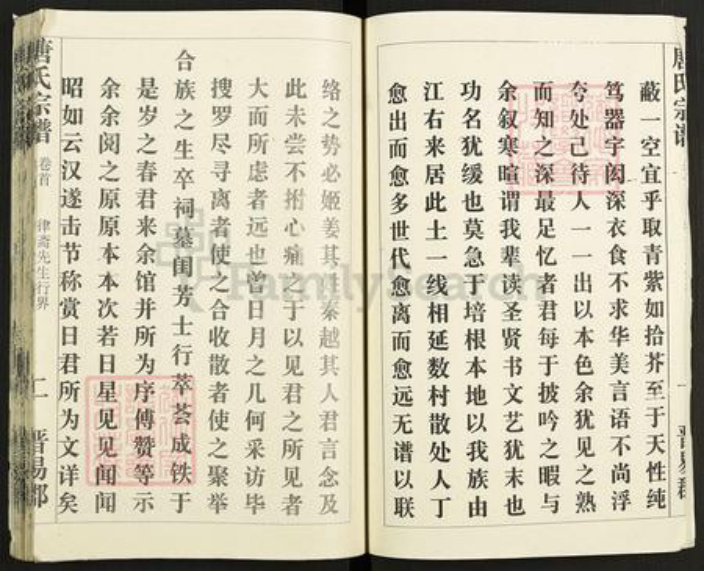 唐氏宗谱
晋易郡
蔽一空宜乎取青紫如拾芥至于天性纯
笃器宇闳深衣食不求华美言语不尚浮
夸处己待人一一出以本色余犹见之熟
而知之深最足忆者君每于披吟之暇与
余叙寒暄谓我辈读圣贤书文艺犹末也
功名犹缓也莫急于培根本地以我族由
江右来居此土一线相延数村散处人丁
愈出而愈多世代愈离而愈远无谱以联
络之势必姬姜其姓秦越其人君言念及
此未尝不拊心痛之于以见君之所见者
大而所虑者远也曾日月之几何采访毕
搜罗尽寻离者使之合收散者使之聚举
合族之生卒祠墓闺芳士行萃荟成铁于
是岁之春君来余馆并所为序傅赞等示
余余阅之原原本本次若日星见见闻闻
昭如云汉遂击节称赏日君所为文详矣
唐氏宗谱
卷首
律斋先生行界
二
晋易郡
FamilySearch